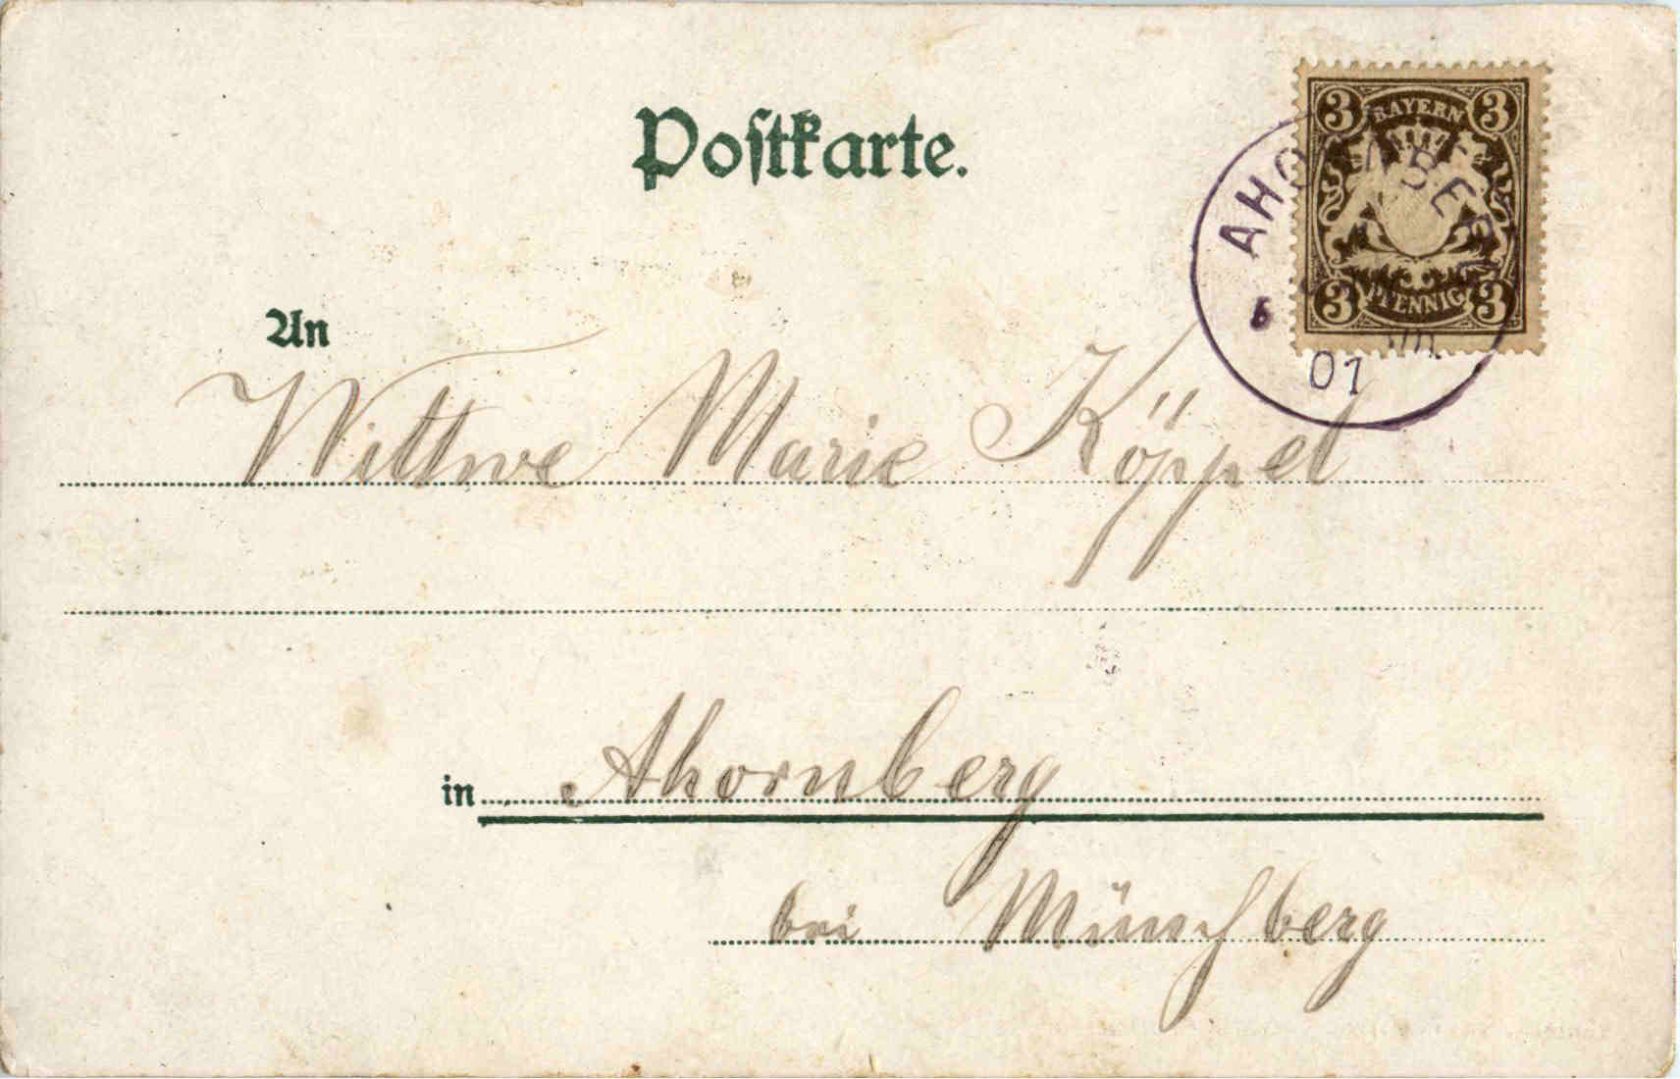 Postkarte.
3 BAYERN 3
3 PFENNIG 3
AHORNBERG
01
An
Wittwe Marie Köppel
in Ahornberg
bei Münchberg